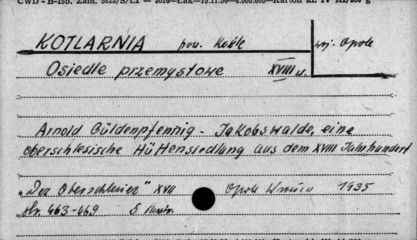 KOTLARNIA pow. Koźle woj. Opole
Osiedle przemysłowe XVIII w.
Arnold Güldenpfennig - Jakobswalde, eine
oberschlesische Hüttensiedlung aus dem XVIII Jahrhundert
"Der Oberschlesier" XVII Opole 1935
str. 463-469 5 ilustr.